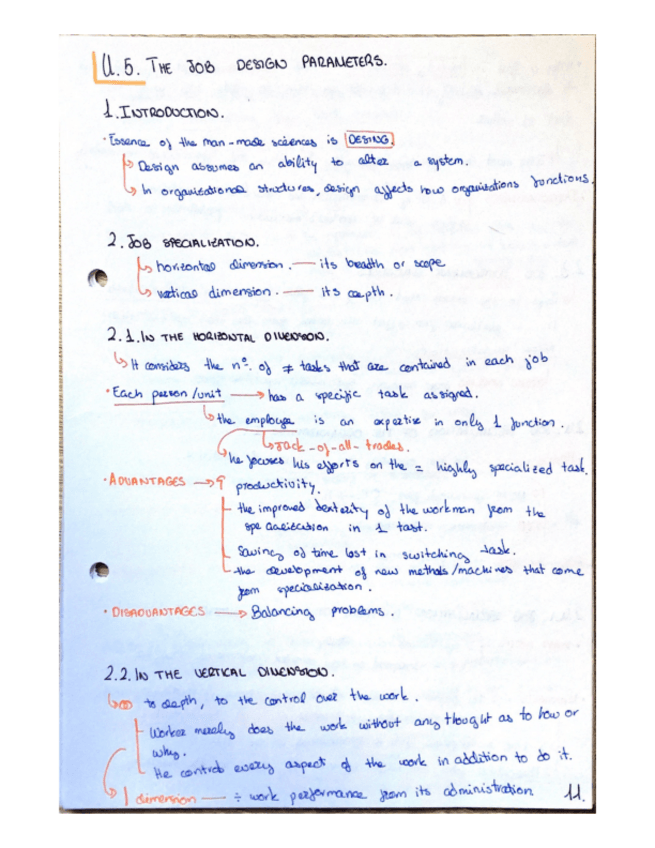 U.5. THE JOB DESIGN PARAMETERS.
1. INTRODUCTION.
· Essence of the man-made sciences is DESING.
↳ Design assumes an ability to alter a system.
↳ In organisational structures, design affects how organisations functions.
2. JOB SPECIALIZATION.
↳ horizontal dimension. — its breadth or scope
↳ vertical dimension. — its depth.
2.1. IN THE HORIZONTAL DIMENSION.
↳ It considers the nº. of ≠ tasks that are contained in each job
· Each person/unit → has a specific task assigned.
↳ the employee is an expertise in only 1 function.
↳ Jack-of-all-trades.
↳ he focuses his efforts on the = highly specialized task.
· ADVANTAGES → ↑ productivity.
- the improved dexterity of the workman from the
in 1 task.
- Saving of time lost in switching task.
- the development of new methods/machines that come
from specialization.
· DISADVANTAGES → Balancing problems.
2.2. IN THE VERTICAL DIMENSION.
↳ to depth, to the control over the work.
- Worker merely does the work without any thought as to how or
why.
- He control every aspect of the work in addition to do it.
↳ 1 dimension — ÷ work performance from its administration.
11.